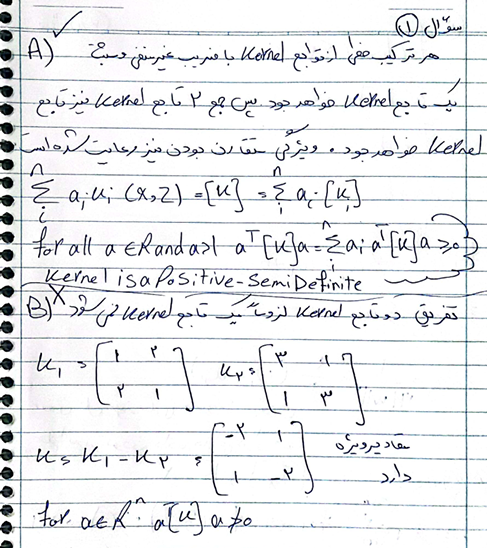 سؤال ①
A) هر ترکیب خطی از توابع Kernel با ضریب غیر منفی و مثبت
یک تابع Kernel خواهد بود پس جمع ۲ تابع Kernel نیز تابع
Kernel خواهد بود. ویژگی متقارن بودن نیز رعایت شده است
n ∑ i a_i K_i (x,z) = [K] = n ∑ i a_i [K_i]
for all a ∈ R and a>1 a^T [K] a = n ∑ i a_i a^T [K] a ≥ 0
Kernel is a Positive-Semi Definite
B) تفریق دو تابع Kernel لزوماً یک تابع Kernel نمی شود
K₁ = [۱ ۲ ; ۲ ۱] K۲ = [۳ ۱ ; ۱ ۳]
K = K₁ - K۲ = [-۲ ۱ ; ۱ -۲] مقادیر ویژه
دارد
for a ∈ R^n a^T [K] a ≱ 0